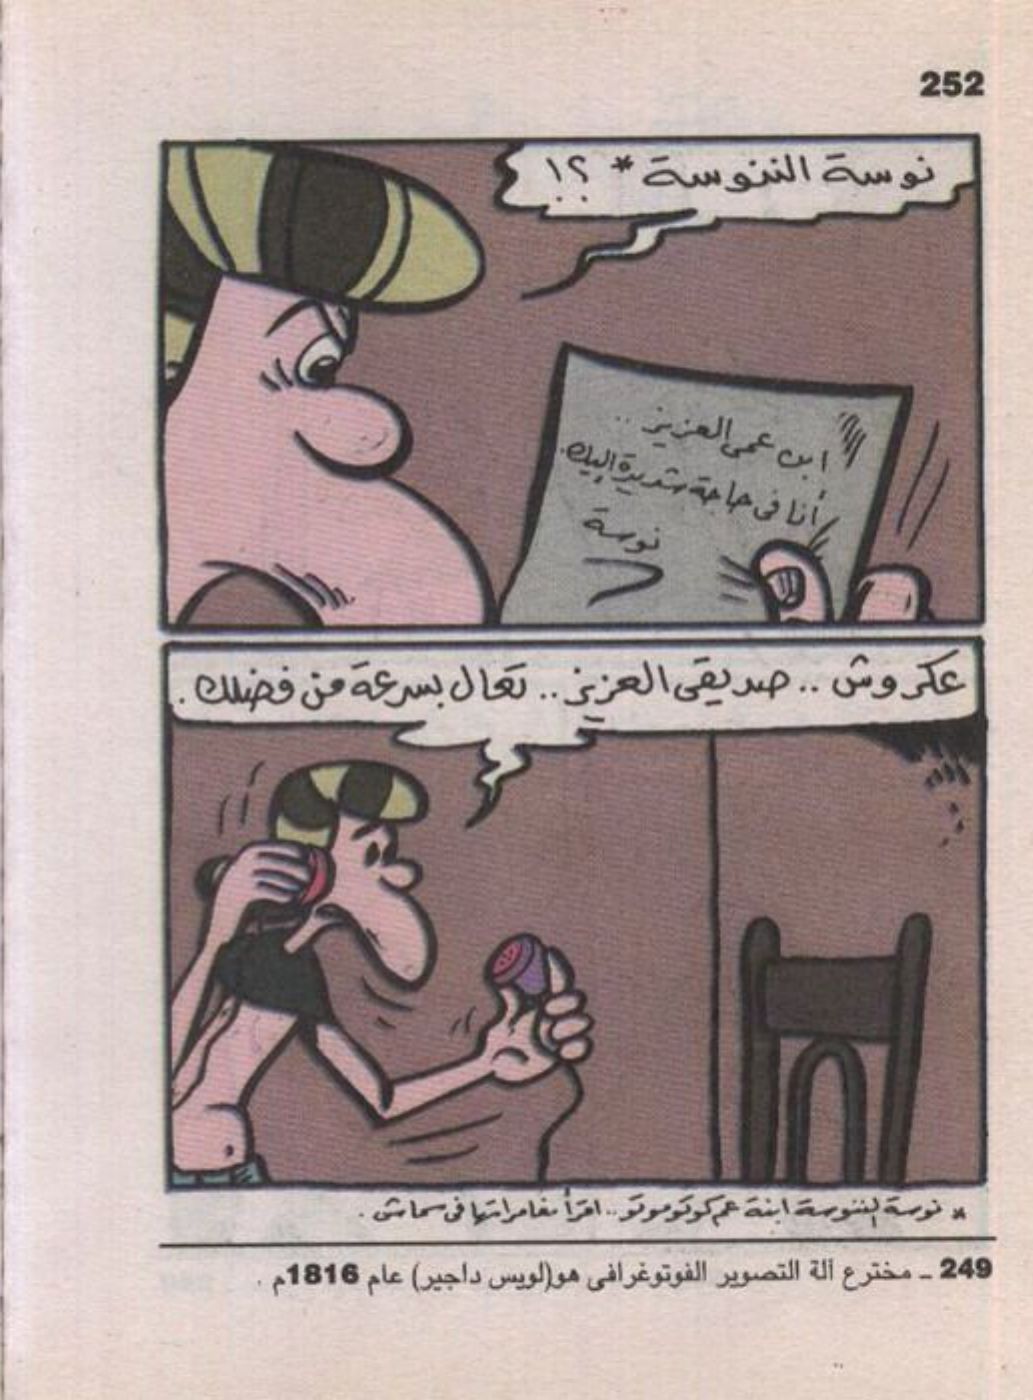 252
نوسة الننوسة * ؟!
ابن عمى العزيز ..
أنا فى حاجة شديدة إليك.
نوسة
عكروش .. صديقى العزيز .. تعال بسرعة من فضلك .
* نوسة الننوسة ابنة عم كوكوموكو .. اقرأ مغامراتها فى سماش .
249 ـ مخترع آلة التصوير الفوتوغرافى هو(لويس داجير) عام 1816م .